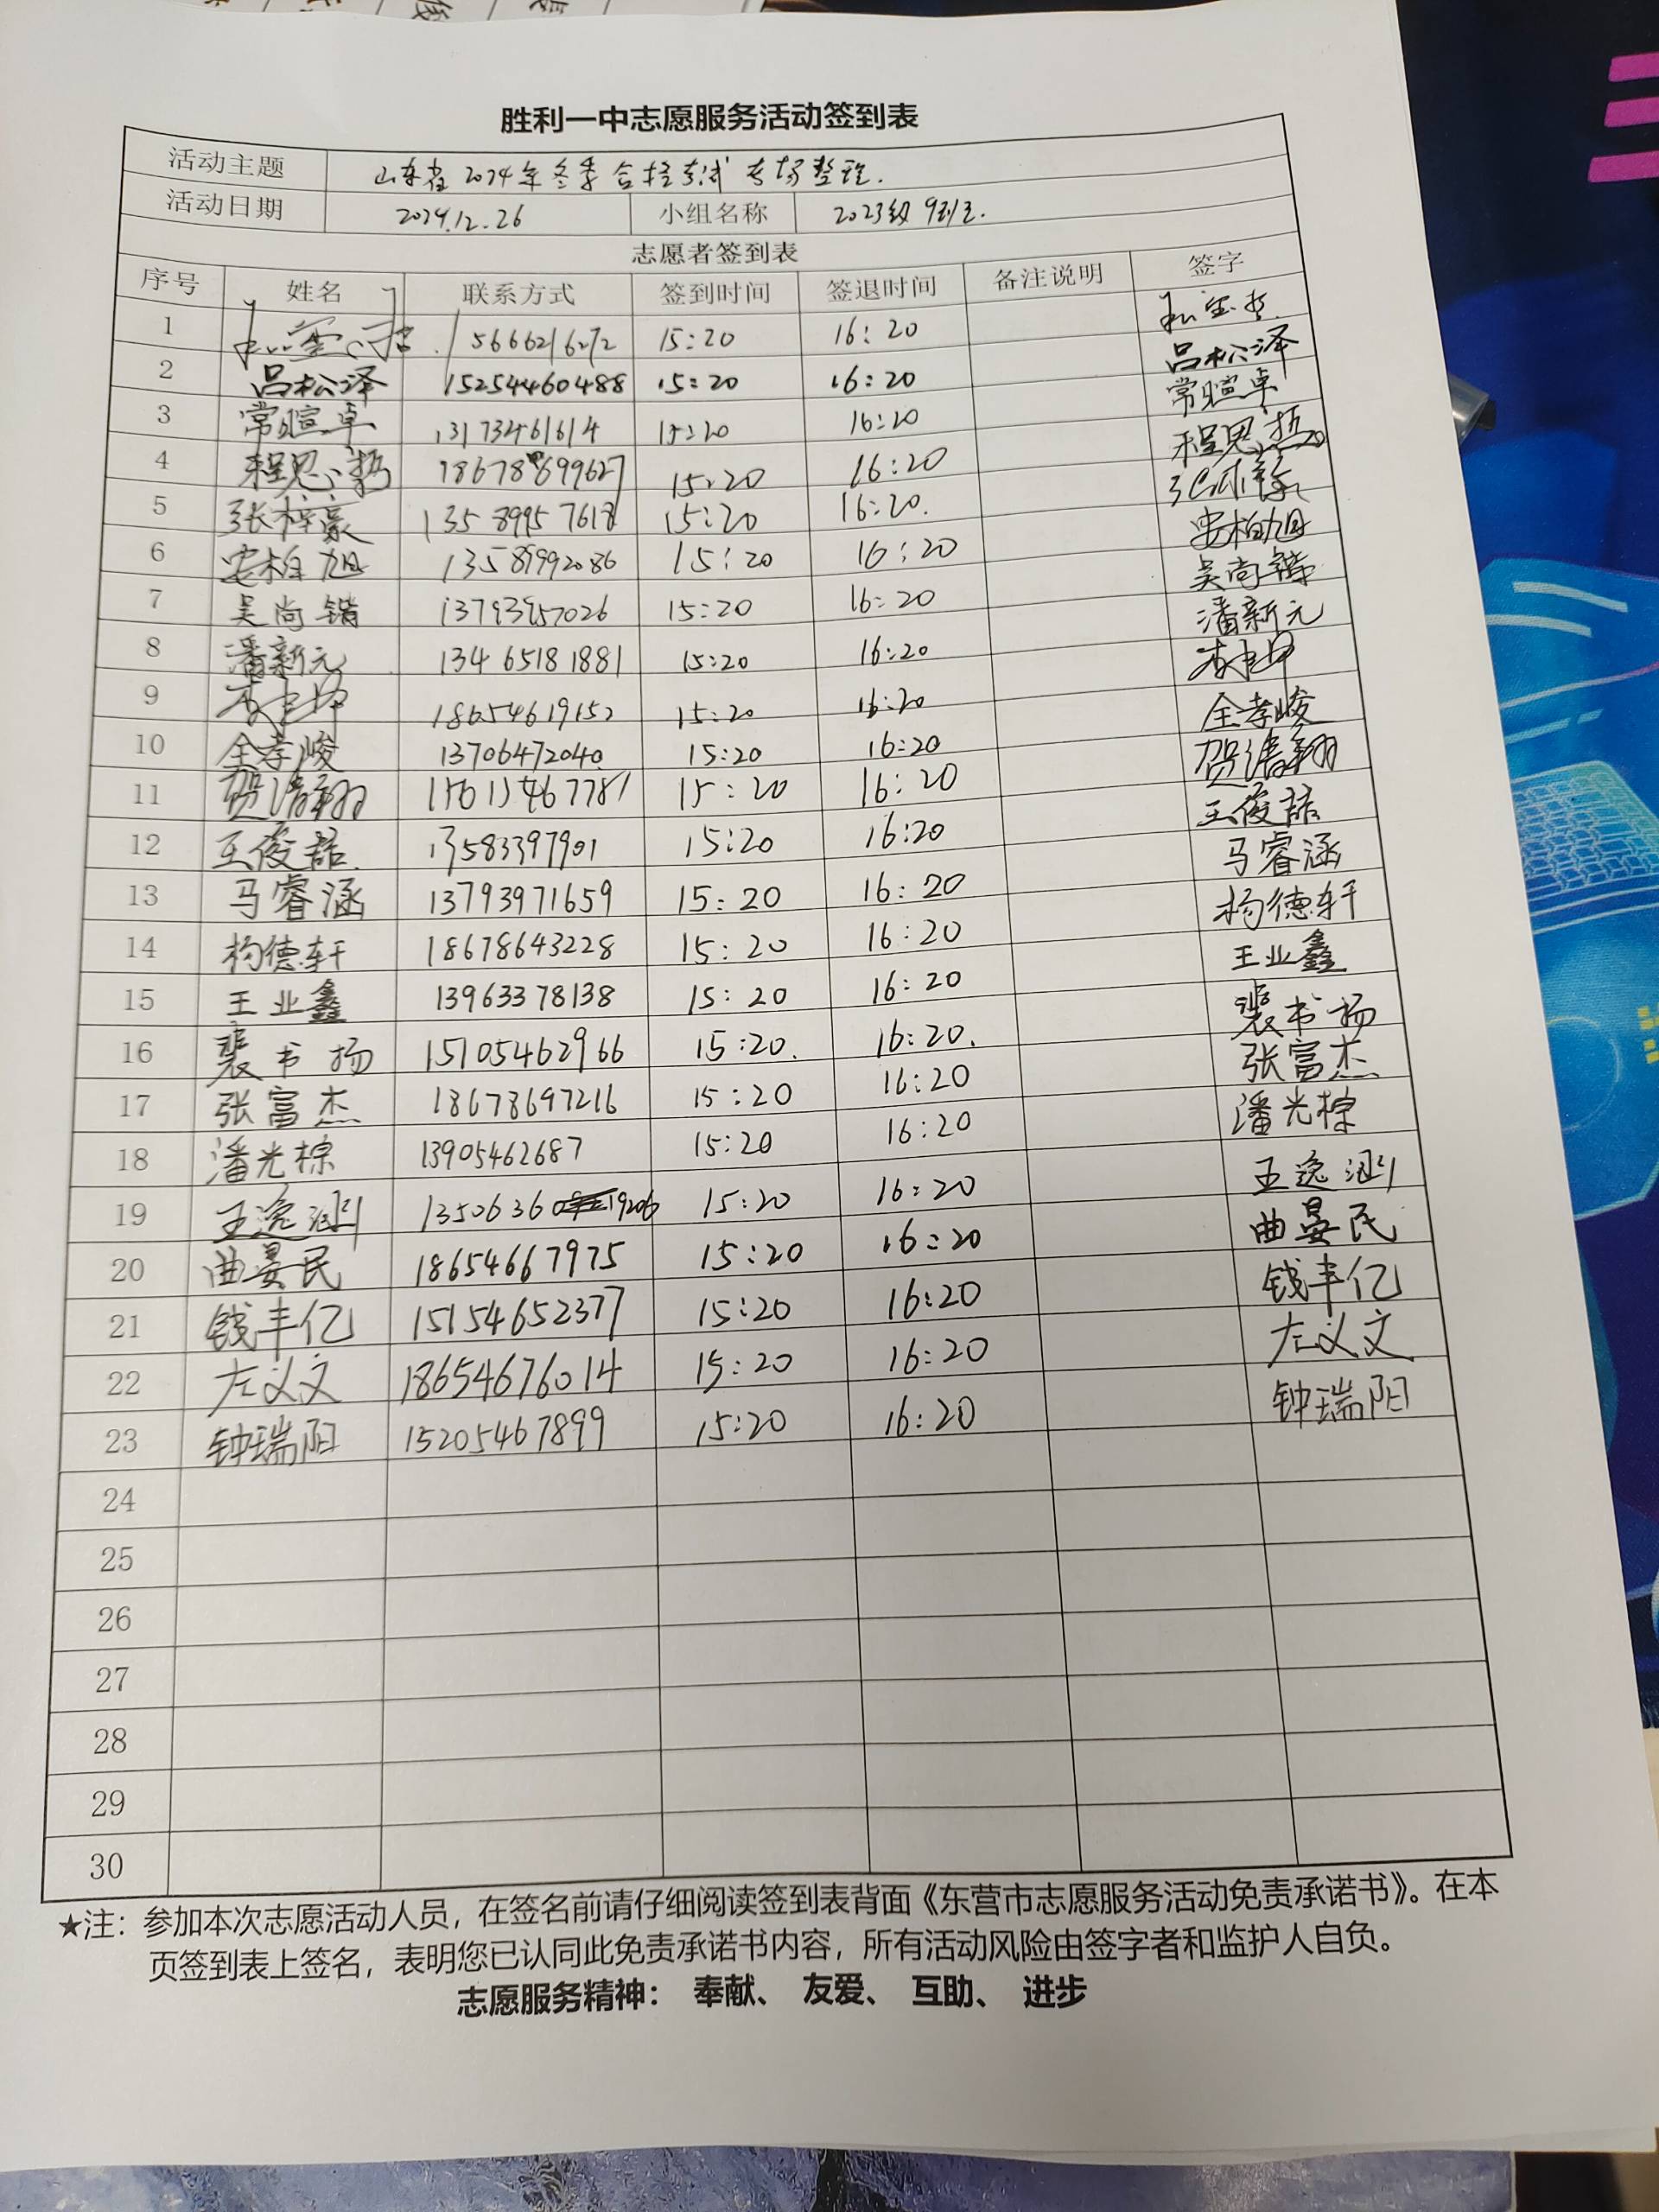 胜利一中志愿服务活动签到表
活动主题 山东省2024年冬季合格考试考场整理.
活动日期 2024.12.26 小组名称 2023级9班.
志愿者签到表
序号 姓名 联系方式 签到时间 签退时间 备注说明 签字
1 15666216272 15:20 16:20
2 吕松泽 15254460488 15:20 16:20 吕松泽
3 常暄卓 13173461614 15:20 16:20 常暄卓
4 程思哲 15:20 16:20 程思哲
5 张梓豪 13589957618 15:20 16:20.
6 安柏旭 13589992086 15:20 16:20 安柏旭
7 吴尚锴 13793957026 15:20 16:20 吴尚锴
8 潘新元 13465181881 15:20 16:20 潘新元
9 18654619152 15:20 16:20
10 全孝峻 13706472040 15:20 16:20 全孝峻
11 贺清翔 15:20 16:20 贺清翔
12 王俊喆 13583397901 15:20 16:20 王俊喆
13 马睿涵 13793971659 15:20 16:20 马睿涵
14 杨德轩 18678643228 15:20 16:20 杨德轩
15 王业鑫 13963378138 15:20 16:20 王业鑫
16 裴书扬 15105462966 15:20. 16:20. 裴书扬
17 张富杰 18678697216 15:20 16:20 张富杰
18 潘光棕 13905462687 15:20 16:20 潘光棕
19 王逸渊 13506360 19206 15:20 16:20 王逸渊
20 曲晏民 18654667975 15:20 16:20 曲晏民
21 钱丰亿 15154652377 15:20 16:20 钱丰亿
22 左义文 18654676014 15:20 16:20 左义文
23 钟瑞阳 15205467899 15:20 16:20 钟瑞阳
24
25
26
27
28
29
30
★注：参加本次志愿活动人员，在签名前请仔细阅读签到表背面《东营市志愿服务活动免责承诺书》。在本
页签到表上签名，表明您已认同此免责承诺书内容，所有活动风险由签字者和监护人自负。
志愿服务精神： 奉献、 友爱、 互助、 进步